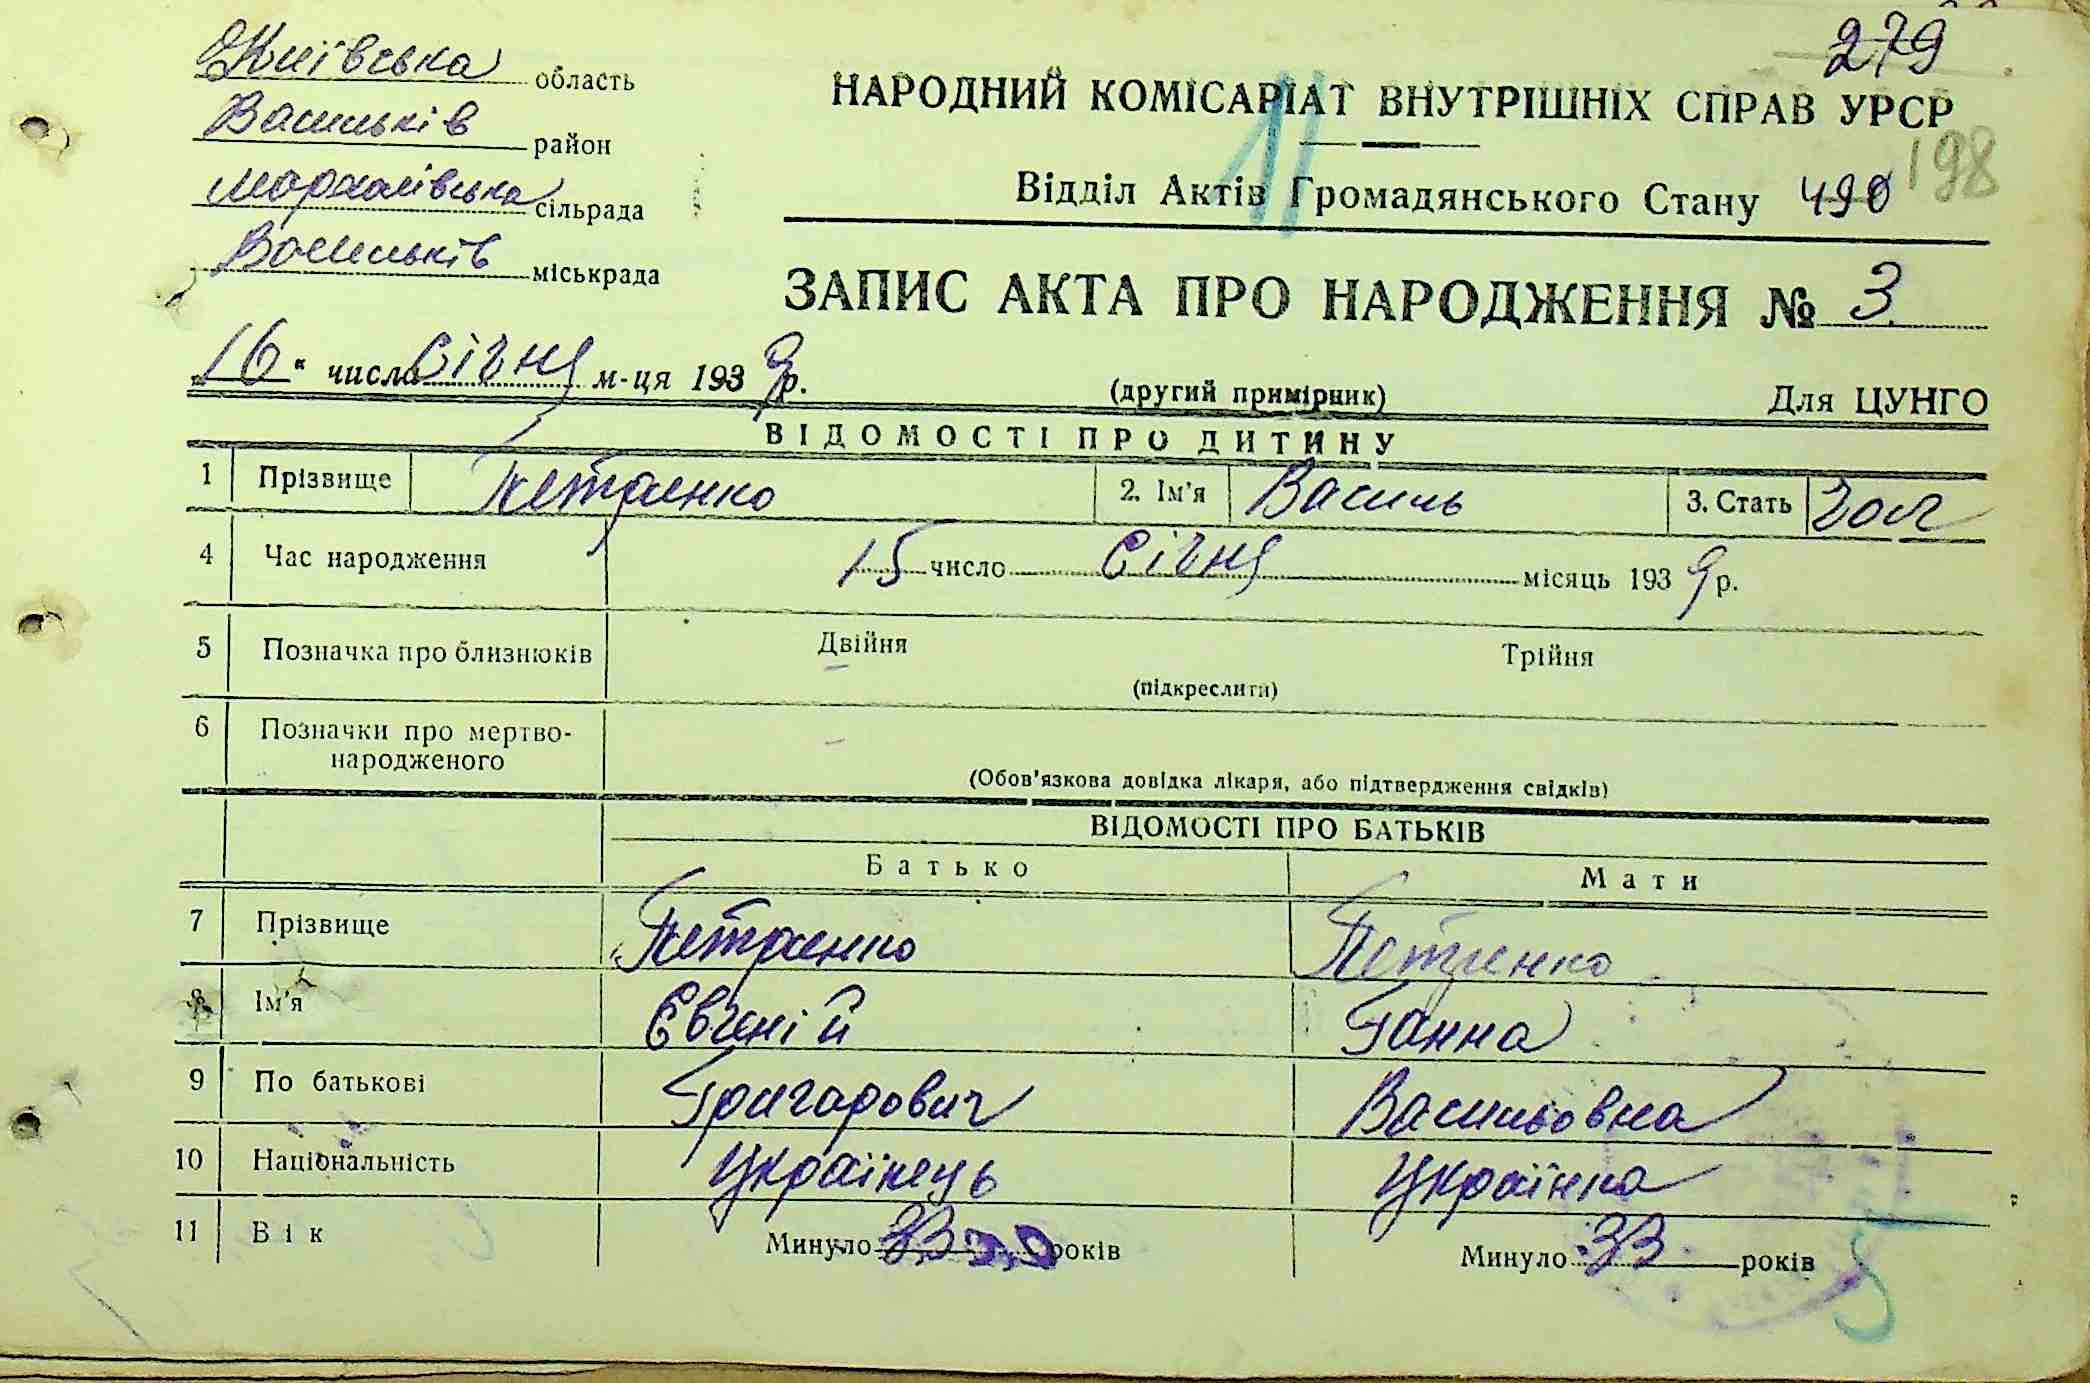 279
Київська область
НАРОДНИЙ КОМІСАРІАТ ВНУТРІШНІХ СПРАВ УРСР
Васильків район
198
Мархалівська сільрада
Відділ Актів Громадянського Стану 490
Васильків міськрада
ЗАПИС АКТА ПРО НАРОДЖЕННЯ № 3
„16“ число Січня м-ця 1939 р.
(другий примірник) Для ЦУНГО
ВІДОМОСТІ ПРО ДИТИНУ
1 Прізвище Петренко 2. Ім'я Василь 3. Стать Чол
4 Час народження 15 число Січня місяць 1939 р.
5 Позначка про близнюків Двійня Трійня
(підкреслити)
6 Позначки про мертво-
народженого –
(Обов'язкова довідка лікаря, або підтвердження свідків)
ВІДОМОСТІ ПРО БАТЬКІВ
Батько Мати
7 Прізвище Петренко Петренко
8 Ім'я Євгеній Ганна
9 По батькові Григорович Васильовна
10 Національність Українець Українка
11 Вік Минуло 33 років Минуло 33 років